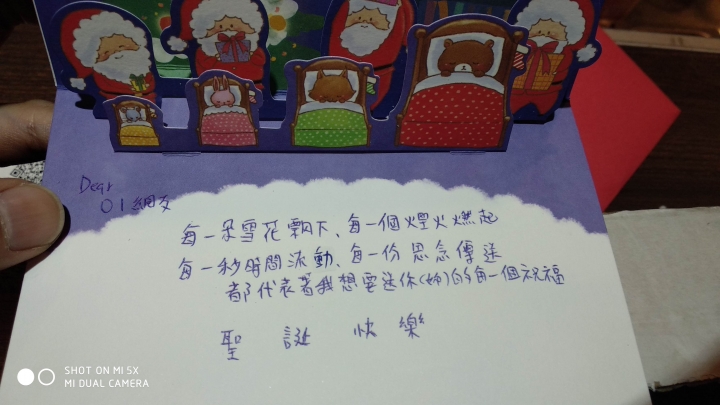 Dear
01網友
每一朵雪花飄下、每一個煙火燃起
每一秒時間流動、每一份思念傳送
都代表著我想要送你(妳)的每一個祝福
聖誕快樂
SHOT ON MI 5X
MI DUAL CAMERA